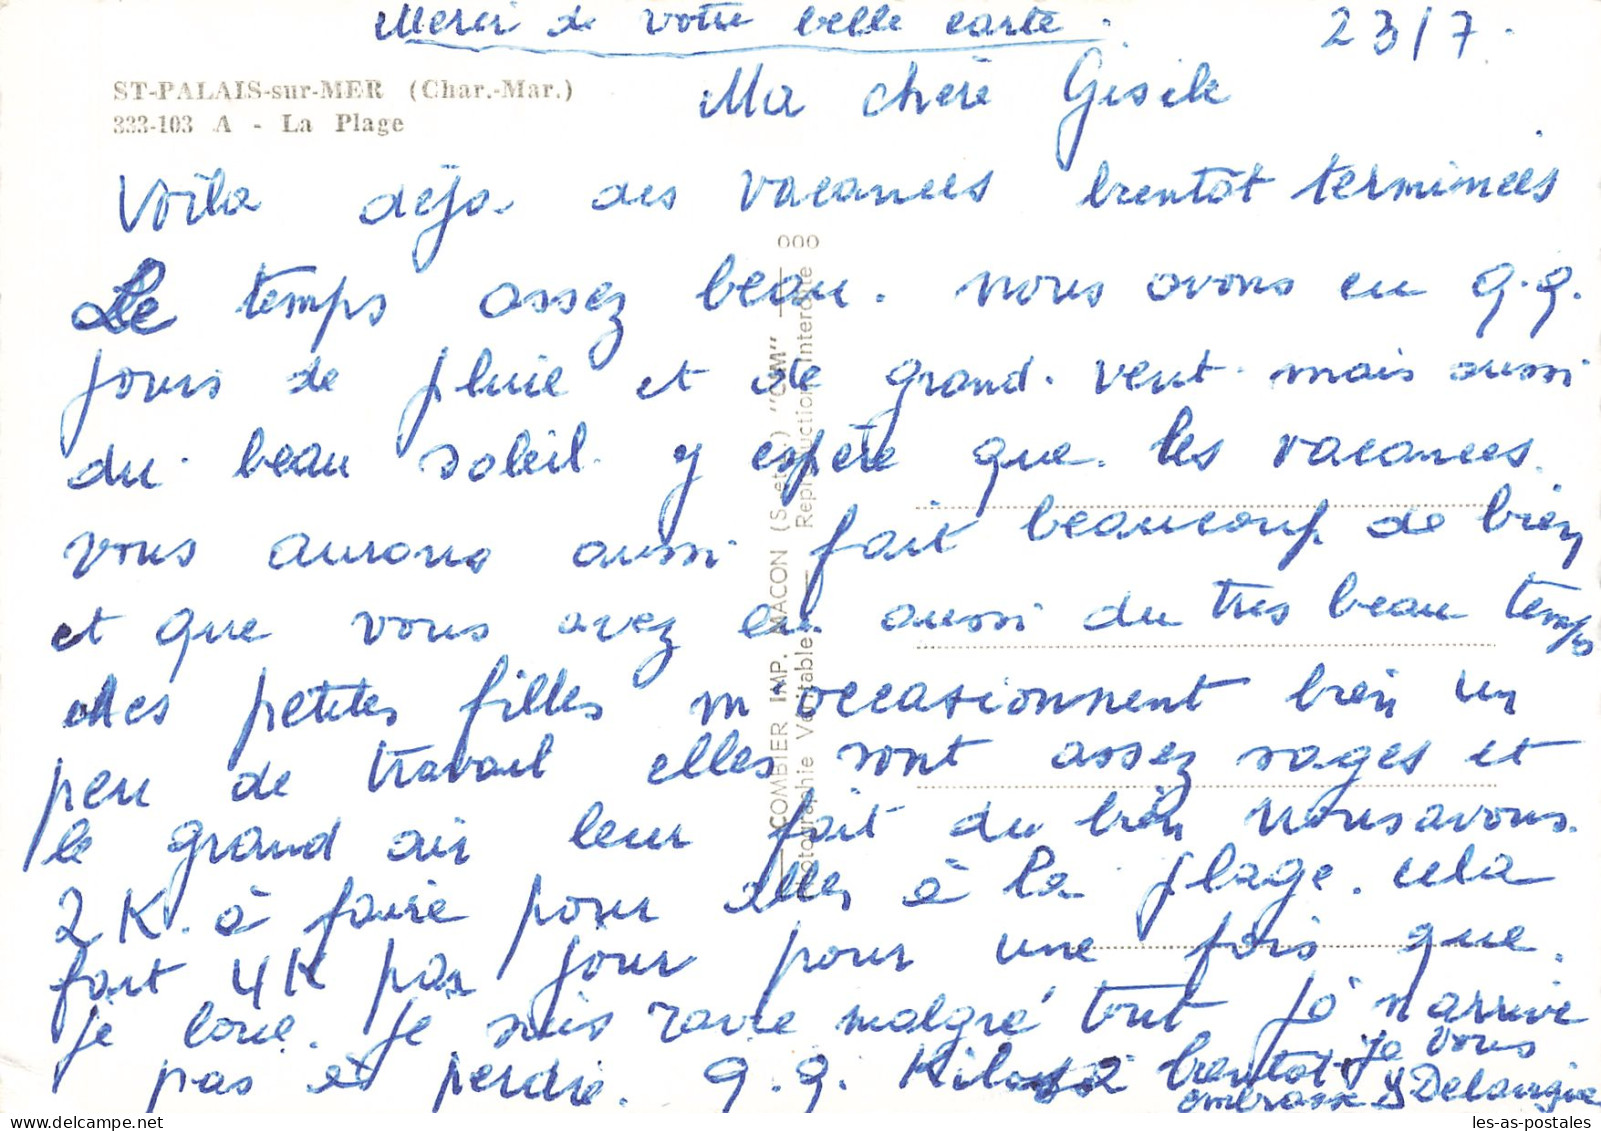 Merci de votre belle carte.
23/7.
ST-PALAIS-sur-MER (Char.-Mar.)
333-103 A - La Plage
Ma chère Gisèle
Voila déja des vacances bientôt terminées
Le temps assez beau. nous avons eu q.q.
jours de pluie et de grand vent mais aussi
du beau soleil. j'espère que les vacances
vous aurons aussi fait beaucoup de bien
et que vous avez eu aussi du très beau temps
les petites filles m'occasionnent bien un
peu de travail elles sont assez sages et
le grand air leur fait du bien nous avons
2 K. à faire pour aller à la plage. cela
fait 4K par jour pour une fois que
je loue. je suis ravie malgré tout je n'arrive
pas à perdre q.q. Kilos à bientot. je vous
embrasse Y Delavigne
COMBIER IMP. MACON (S. et L.) "CIM"
Photographie Véritable — Reproduction Interdite
000
les-as-postales
www.delcampe.net